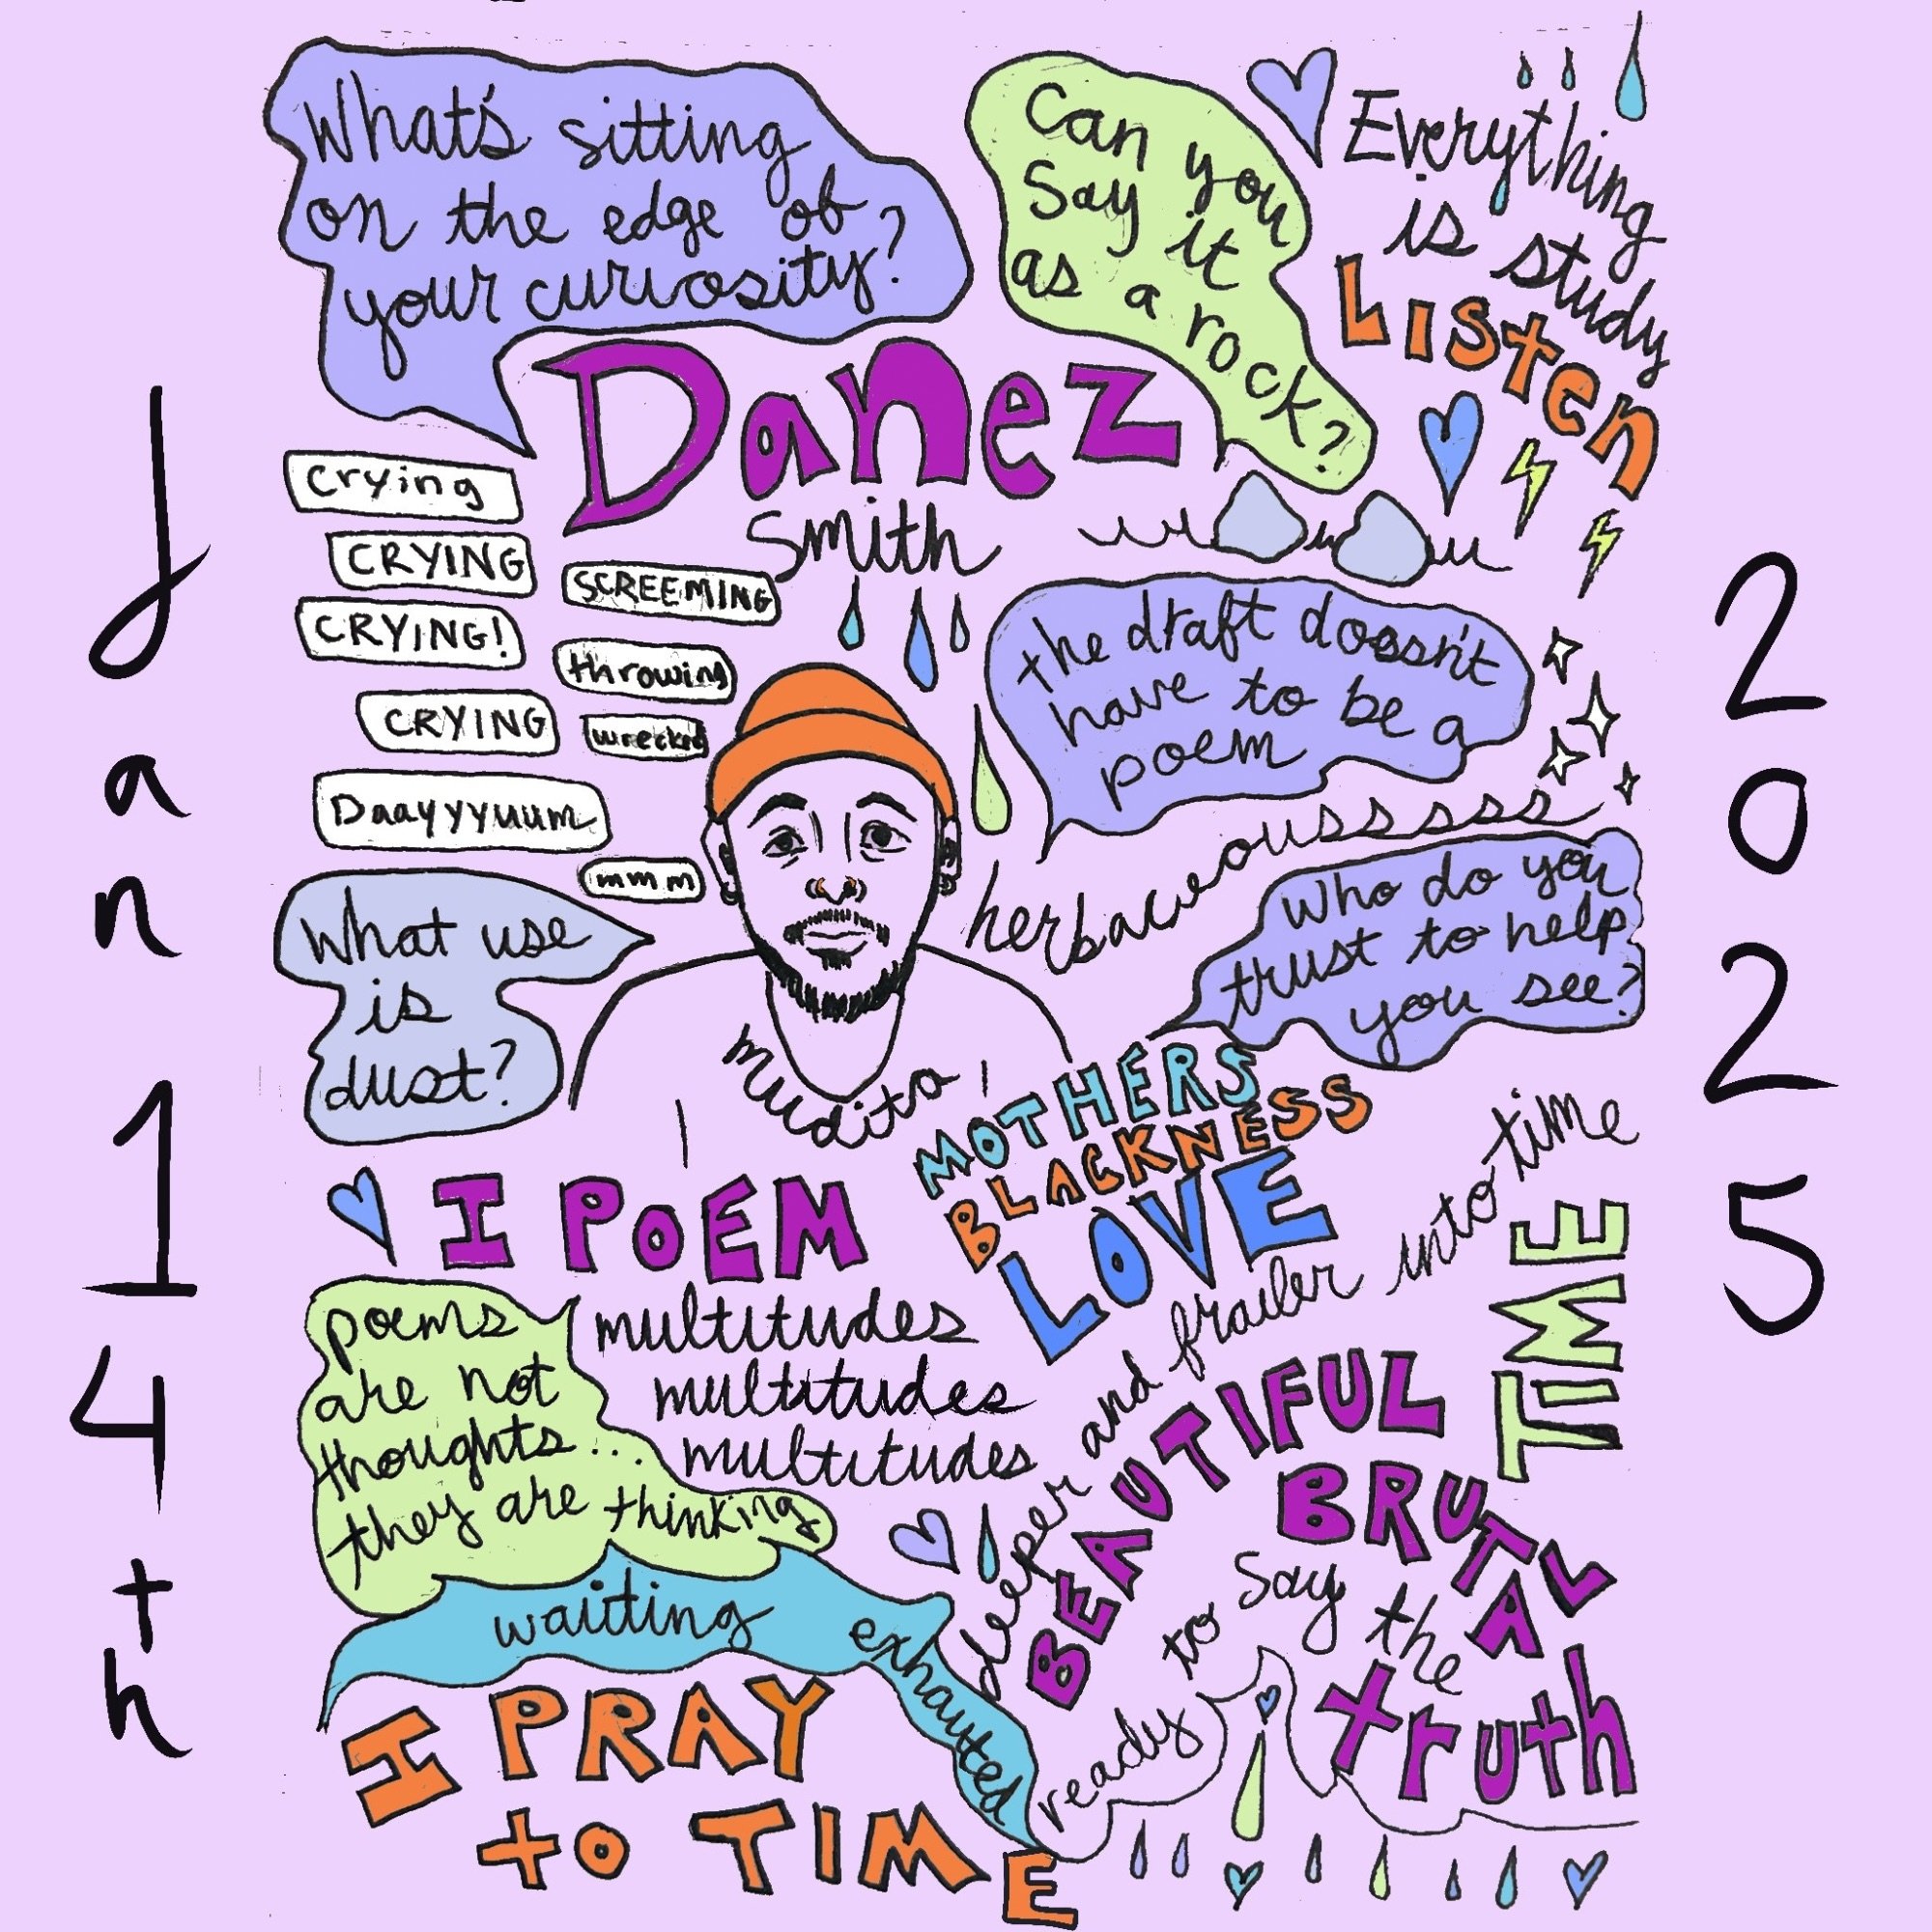 What's sitting
on the edge of
your curiosity?
Can you
Say it
as a rock?
Everything
is study
Listen
Danez
Smith
Crying
CRYING
CRYING!
CRYING
Daayyyuum
SCREEMING
throwing
wrecked
mmm
the draft doesn't
have to be a
poem
herbaceoussssss
Who do you
trust to help
you see?
What use
is
dust?
mudita
MOTHERS
BLACKNESS
LOVE
I POEM
multitudes
multitudes
multitudes
poems
are not
thoughts...
they are thinking
deeper and frailer into time
TIME
BEAUTIFUL
BRUTAL
waiting
exhausted
ready to say the
truth
I PRAY
to TIME
Jan 14th
2025